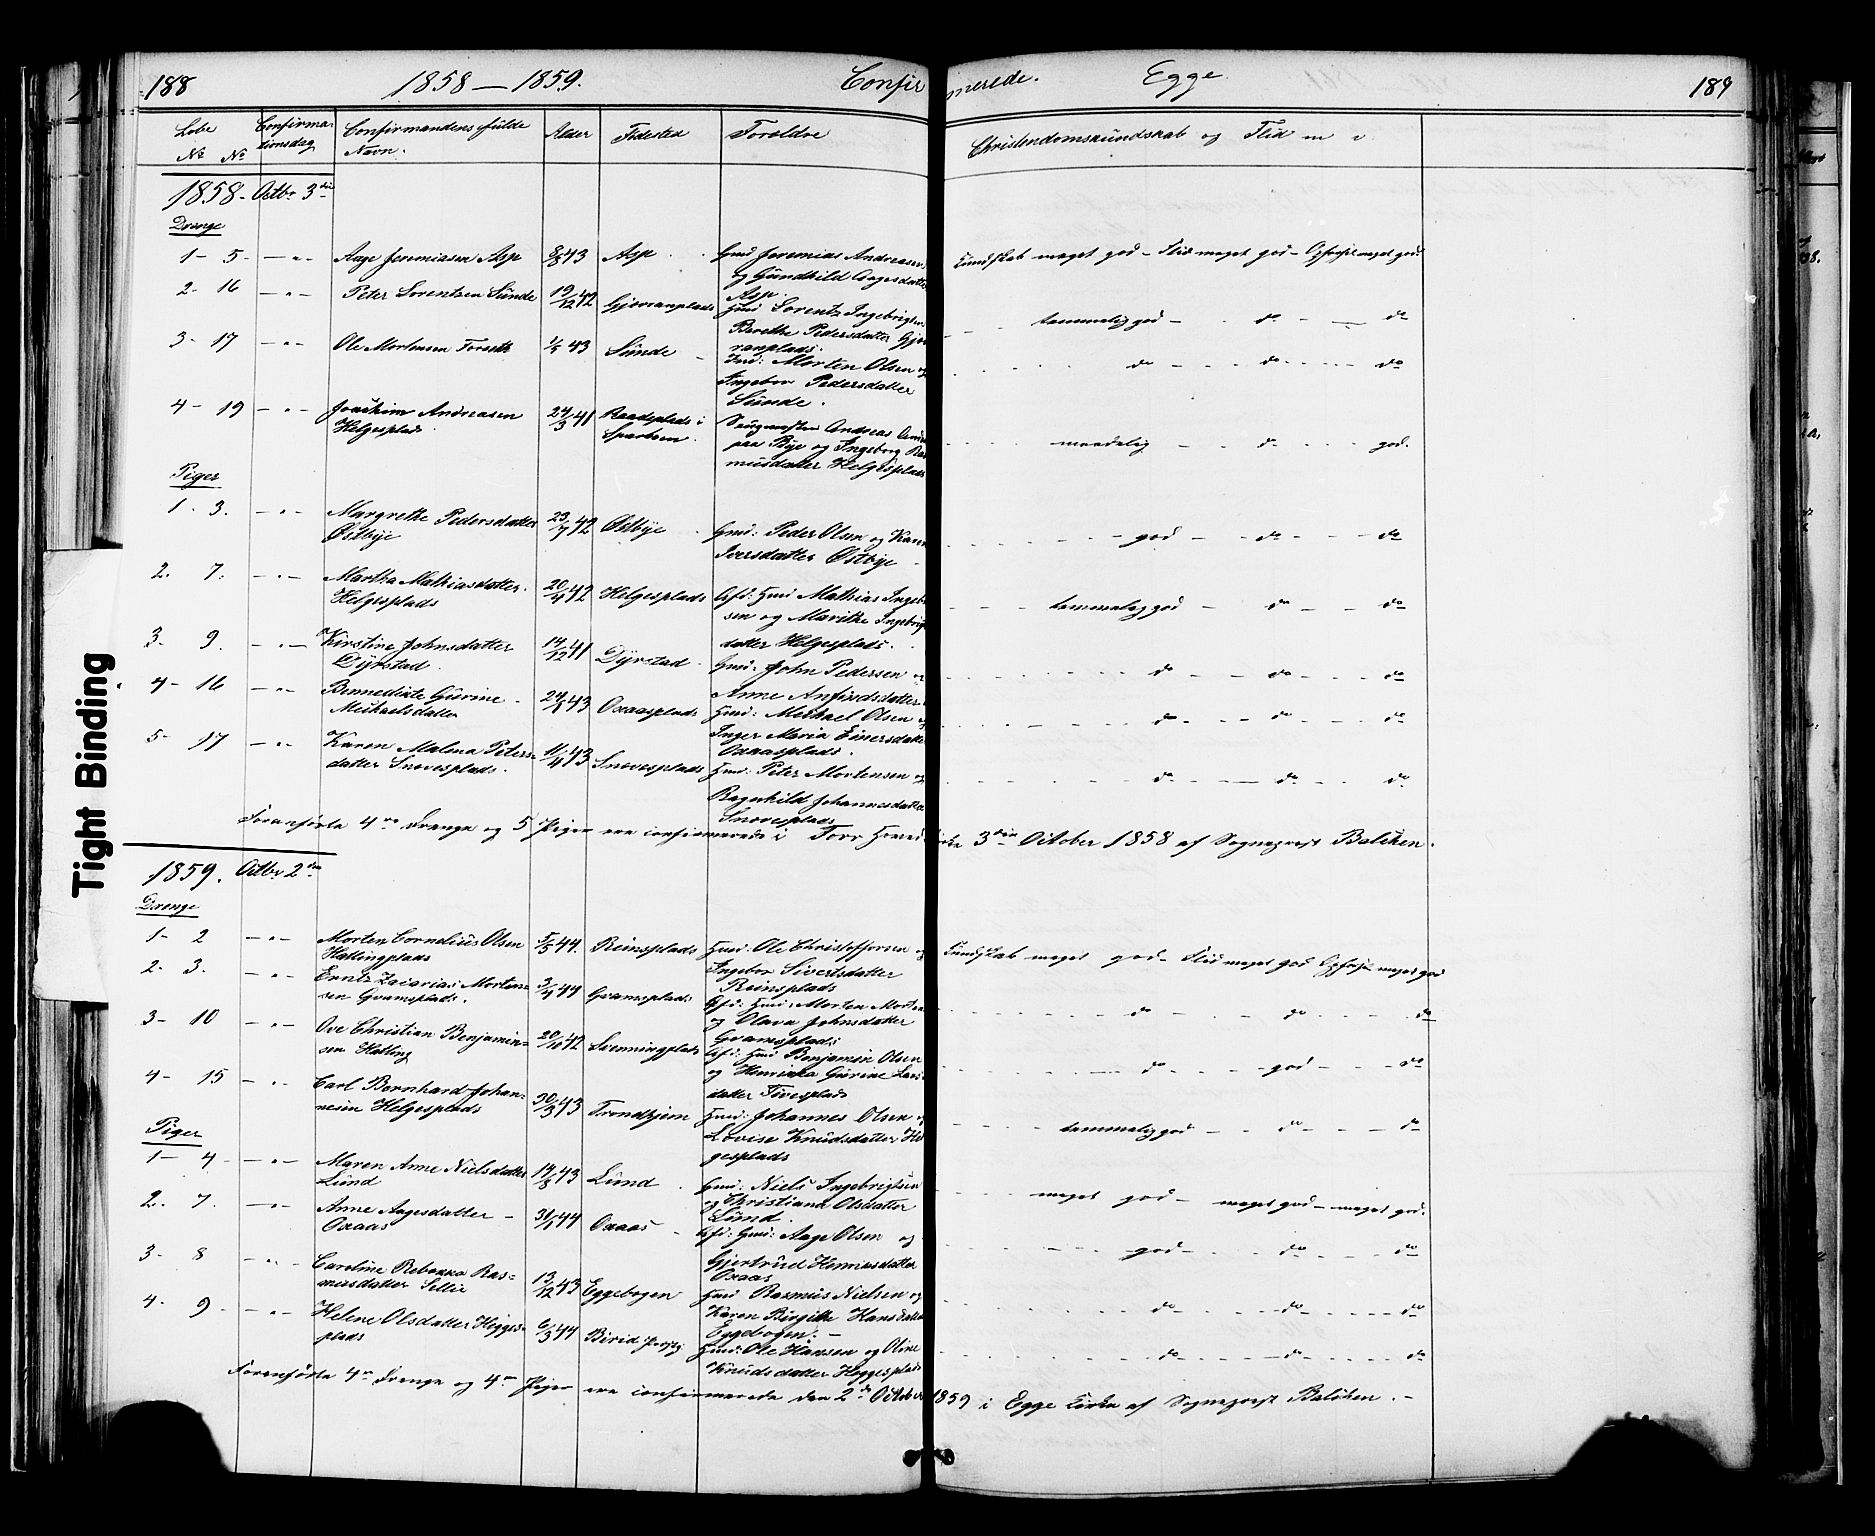 188 1858 — 1859. Confirmerede. Egge 189
Løbe No No
Confirmationsdag
Confirmandens fulde Navn.
Alder
Fødested
Forældre
Christendomskundskab og Flid m v.
1858. Octbr 3die
Drenge
1 - 5 - — " — Aage Jeremiasen Asp 8/8 43 Asp Gmd Jeremias Andreasen
og Gundhild Aagesdatter
Asp.
Kundskab meget god - Flid meget god - Opførsel meget god
2 - 16 — " — Peter Lorentzen Sünde 19/12 42 Gjævranplads Hmd Lorentz Ingebrigtsen
Berethe Pedersdatter Gjæv
ranplads.
temmelig god - do - do
3 - 17 — " — Ole Mortensen Forseth 1/5 43 Sünde Ind: Morten Olsen og
Ingebor Pedersdatter
Sünde.
do - do - do
4 - 19 — " — Joachim Andreasen
Helgesplads
24/3 41 Raadsplads i
Sparboen.
Andreas
paa Bye og Ingeborg Ras
musdatter Helgesplads
maadelig - do - god.
Piger
1 - 3. — " — Margrethe Pedersdatter
Østbye
23/7 42 Østbye Gmd: Peder Olsen og Karen
Iversdatter Østbye
god - do - do
2. 7. — " — Martha Mathiasdatter
Helgesplads
20/4 42 Helgesplads Afd: Hmd Mathias Ingebr
sen og Marithe Ingebrigts
datter Helgesplads.
temmelig god - do - do
3. 9. — " — Kirstine Johnsdatter
Dÿrstad
14/12 41 Dÿrstad Gmd: John Pedersen og
Anne Anfindsdatter
do - do - do
4 - 16 — " — Bennedikte Gurine
Michaelsdatter
24/1 43 Oxaasplads Hmd: Michael Olsen og
Inger Maria Einersdatter
Oxaasplads.
do - do - do
5 - 17 — " — Karen Malena Peters-
datter Snevesplads.
11/4 43 Snevesplads Hmd: Peter Mortensen og
Ragnhild Johannesdatter
Snevesplads
do - do - do
Foranførte 4re Drenge og 5 Piger ere confirmerede i For Hoved kirke 3die October 1858 af Sogneprest Balchen.
1859. Octbr 2den
Drenge
1 - 2 — " — Morten Cornelius Olsen
Hallingplads
5/5 44. Reinsplads Hmd: Ole Christophersen og
Ingebor Sivertsdatter
Reinsplads
Kundskab meget god - Flid meget god Opførsel meget god
2. 3. — " — Ernts Zacarias Morten-
sen Gvamsplads.
3/4 44 Gvamsplads Afd: Hmd: Morten Morten
og Olava Johnsdatter
Gvamsplads
do - do - do
3 - 10 — " — Ove Christian Benjamin-
sen Hatling
20/10 42 Svenningplads Afd: Hmd Benjamin Olsen
og Henrikka Gurine Lars
datter Tüvesplads
do - god - do
4 - 15 — " — Carl Bernhard Johan-
nesen Helgesplads
30/3 43 Trondhjem Hmd: Johannes Olsen og
Lovise Knudsdatter Hel
gesplads
temmelig god - do - do
Piger
1 - 4 - — " — Maren Anne Nielsdatter
Lünd
14/8 43 Lünd Gmd: Niels Ingebrigtsen
og Christiana Olsdatter
Lünd.
meget god - meget god - meget god.
2. 7. — " — Anne Aagesdatter -
Oxaas
31/1 44 Oxaas Afd: Gmd: Aage Olsen og
Gjertrud Henriksdatter
Oxaas
god - do - do
3 - 8 — " — Caroline Rebekka Ras-
musdatter Sellie
13/12 43 Eggebogen Hmd Rasmus Nielsen og
Karen Birgitte Hansdatter
Eggebogen. -
do - do - do
4. 9 - — " — Helene Olsdatter Hegges-
plads
6/3 44 Birid Hmd: Ole Hansen og Oline
Knudsdatter Heggesplads
do - do - do
Foranførte 4re Drenge og 4re Piger ere confirmerede den 2den October 1859 i Egge Kirke af Sogneprest Balchen. -
Tight Binding